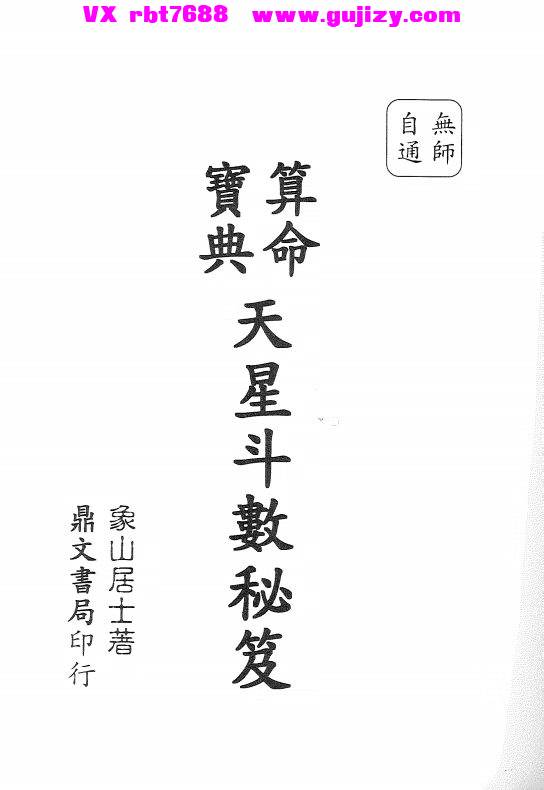 VX rbt7688 www.gujizy.com
無師
自通
算命
寶典
天星斗數秘笈
象山居士著
鼎文書局印行